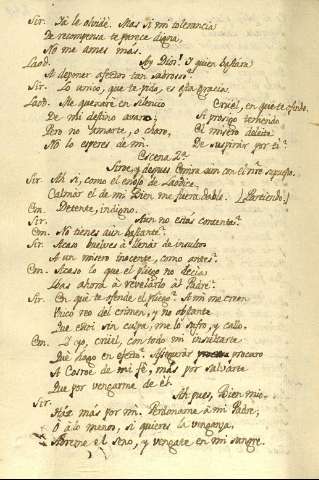 Sir. Ya le olvidé. Mas si mi tolerancia
De recompensa te parece digna,
No me ames más.
Laod. Ay Dios! Y quien bastara
A deponer afectos tan sabrosos?
Sir. Lo unico, que te pido, es esta gracia.
Laod. Me quexaré en silencio
De mi destino avaro;
Pero no amarte, o charo,
No lo esperes de mi.
Cruel, en que te ofendo,
Si prosigo teniendo
El misero deleite
De suspirar por ti?
Escena 2ª
Siroe, y despues Emira aun con el
Sir. Ah si, como el enojo de Laodice
Calmár el de mi Bien me fuera dable. (Partiendo.)
Em. Detente, indigno.
Sir. Aun no estás contenta?
Em. No tienes aún bastante?
Sir. Acaso buelves à llenár de insultos
A un misero inocente, como antes?
Em. Acaso lo que el pliego no decia
Ibas ahora à revelarlo al Padre?
Sir. En qué te ofende el pliego? A mi me creen
Reo del crimen, y no obstante
Que estoi sin culpa, me lo sufro, y callo.
Em. Y yo, cruel, con todo mi insultarte
Qué hago en efecto? Assegurár procuro
A Cosroe de mi fé, más por salvarte
Que por vengarme de él.
Sir. Ah pues, Bien mio,
Haz más por mi. Perdoname à mi Padre;
O álo menos, si quieres la venganza,
Abreme el seno, y vengate en mi sangre.